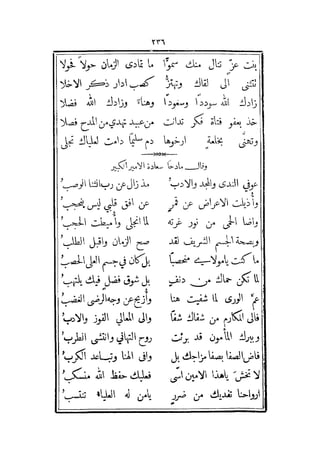 ٢٣٦
بنت عزّ تنال منك سموّا ما تمادى الزمان حولاً فحولا
تتثنى الى لقاك وتهتزّ كصب ادار ذكر الاخلا
زادك الله سوددًا وسعودًا وهناءً وزادك الله فضلا
خذ بعفو فتاة فكر تدانت من عبيد تهدي من المدح فصلا
وتهنَّى بخلعةٍ ارخوها دم سليمًا دامت لعلياك تجلى
وقال مادحًا سعادة الامير الكبير
عوفي الندى والمجد والادبُ مذ زال عن ربّ الثنا الوصبُ
وأذيلت الاعراض عن قمر عن افق قلبي ليس يحتجبُ
واضا الحمى من نور غرته لما انجلى وأميطت الحجبُ
وبصحة الجسم الشريف لقد صح الزمان واقبل الطلبُ
ما كنت يامولاي منحصبًا بل كان في جسم العلى الحصبُ
لم تكن حماك من دنف بل شوق فضل فيك يلتهبُ
عمّ الورى لما شفيت هنا وأزيح عن وجه الرضى الغضبُ
فالى المكارم من شفاك شفًا والى المعالي الفوز والادبُ
وببرك المأمون قد برئت روح التهاني وانتشى الطربُ
فاض الصفا بصفا مزاجك بل وافى الهنا وتباعد الكربُ
لا تخشَ ياهذا الامين اسًى فعليك حفظ الله منسكبُ
ارواحنا تفديك من ضررٍ يامن له العلياء تنتسبُ